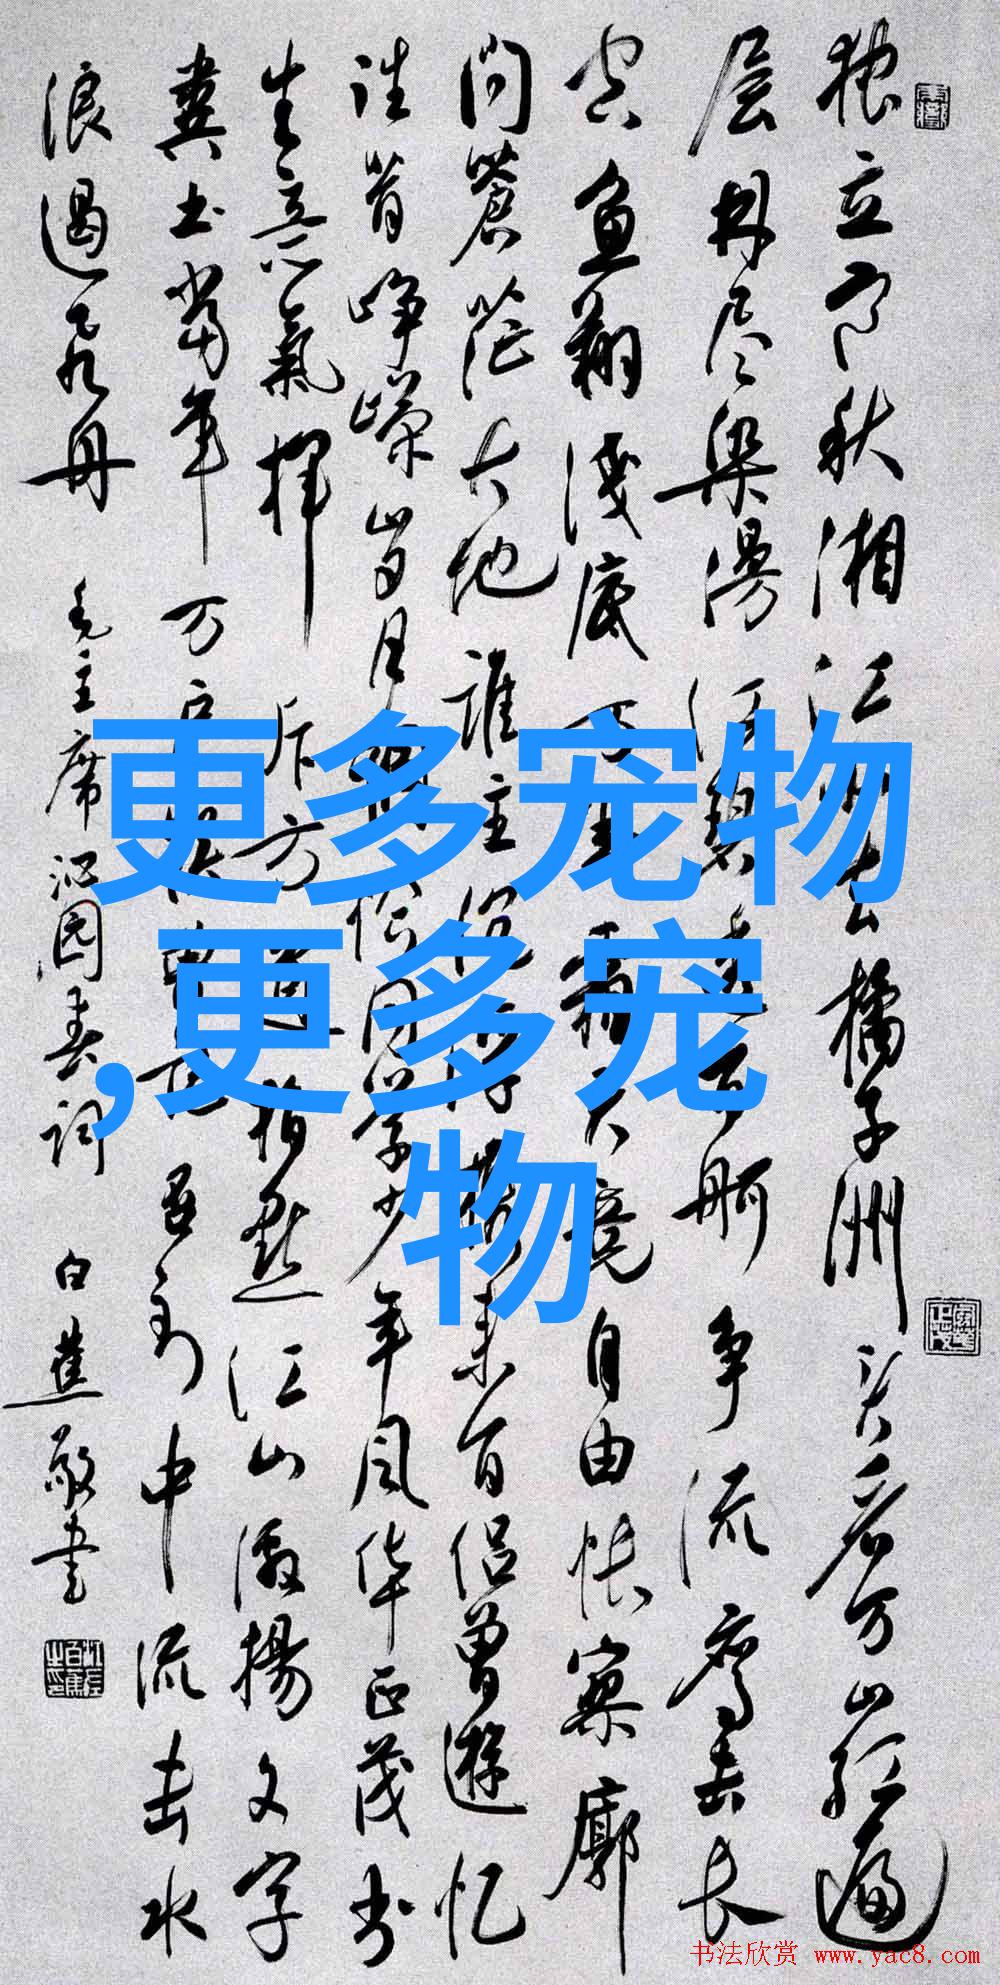 独立寒秋湘江北去橘子洲头看万山红遍
层林尽染漫江碧透百舸争流鹰击长
空鱼翔浅底万类霜天竞自由怅寥廓
问蒼茫大地谁主沉浮携来百侣曾遊忆
往昔峥嵘岁月稠恰同学少年风华正茂书
生意氣挥斥方遒指点江山激揚文字
粪土当年万户侯曾记否到中流击水
浪遏飞舟 毛主席沁园春词 白蕉敬书
更多宠物
,更多宠
物
书法欣赏 www.yac8.com